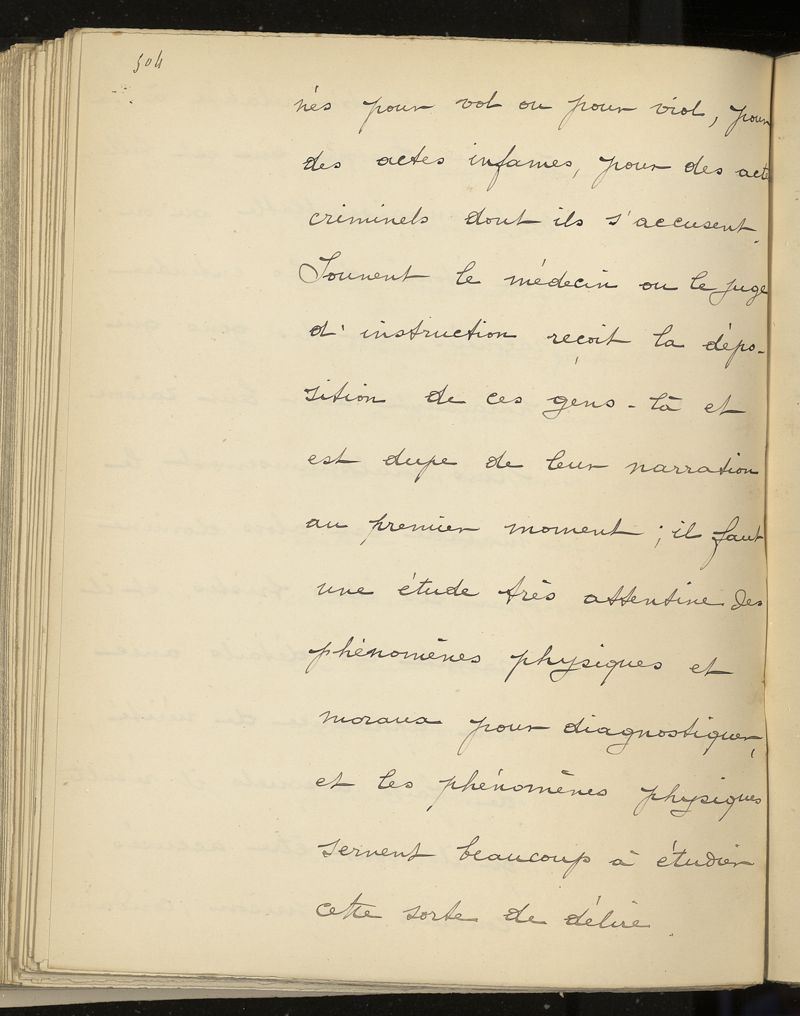 504
nés pour vol ou pour viol, pour
des actes infames, pour des acte
criminels dont ils s'accusent.
Souvent le médecin ou le juge
d'instruction reçoit la dépo-
sition de ces gens-là et
est dupe de leur narration
au premier moment ; il faut
une étude très attentive des
phénomènes physiques et
moraux pour diagnostiquer,
et les phénomènes physiques
servent beaucoup à étudier
cette sorte de délire.